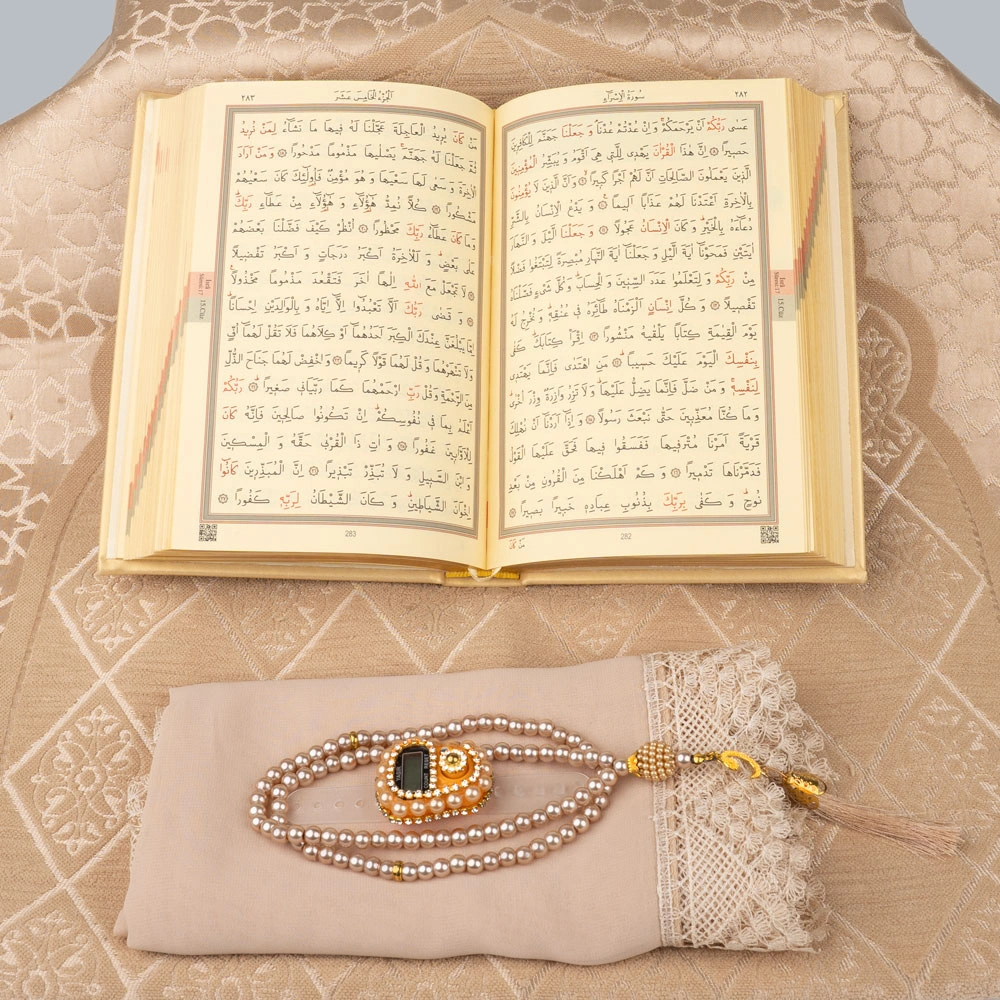 سُورَةُ الْاِسْرَاءِ ٢٨٢
عَسٰى رَبُّكُمْ اَنْ يَرْحَمَكُمْ وَاِنْ عُدْتُمْ عُدْنَا وَجَعَلْنَا جَهَنَّمَ لِلْكَافِرِينَ
حَصِيرًا اِنَّ هٰذَا الْقُرْاٰنَ يَهْدِي لِلَّتِي هِيَ اَقْوَمُ وَيُبَشِّرُ الْمُؤْمِنِينَ
الَّذِينَ يَعْمَلُونَ الصَّالِحَاتِ اَنَّ لَهُمْ اَجْرًا كَبِيرًا وَاَنَّ الَّذِينَ لَا يُؤْمِنُونَ
بِالْاٰخِرَةِ اَعْتَدْنَا لَهُمْ عَذَابًا اَلِيمًا وَيَدْعُ الْاِنْسَانُ بِالشَّرِّ
دُعَاءَهُ بِالْخَيْرِ وَكَانَ الْاِنْسَانُ عَجُولًا وَجَعَلْنَا الَّيْلَ وَالنَّهَارَ
اٰيَتَيْنِ فَمَحَوْنَا اٰيَةَ الَّيْلِ وَجَعَلْنَا اٰيَةَ النَّهَارِ مُبْصِرَةً لِتَبْتَغُوا فَضْلًا
مِنْ رَبِّكُمْ وَلِتَعْلَمُوا عَدَدَ السِّنِينَ وَالْحِسَابَ وَكُلَّ شَيْءٍ فَصَّلْنَاهُ
تَفْصِيلًا وَكُلَّ اِنْسَانٍ اَلْزَمْنَاهُ طَائِرَهُ فِي عُنُقِهِ وَنُخْرِجُ لَهُ
يَوْمَ الْقِيٰمَةِ كِتَابًا يَلْقٰيهُ مَنْشُورًا اِقْرَأْ كِتَابَكَ كَفٰى
بِنَفْسِكَ الْيَوْمَ عَلَيْكَ حَسِيبًا مَنِ اهْتَدٰى فَاِنَّمَا يَهْتَدِي
لِنَفْسِهِ وَمَنْ ضَلَّ فَاِنَّمَا يَضِلُّ عَلَيْهَا وَلَا تَزِرُ وَازِرَةٌ وِزْرَ اُخْرٰى
وَمَا كُنَّا مُعَذِّبِينَ حَتّٰى نَبْعَثَ رَسُولًا وَاِذَا اَرَدْنَا اَنْ نُهْلِكَ
قَرْيَةً اَمَرْنَا مُتْرَفِيهَا فَفَسَقُوا فِيهَا فَحَقَّ عَلَيْهَا الْقَوْلُ
فَدَمَّرْنَاهَا تَدْمِيرًا وَكَمْ اَهْلَكْنَا مِنَ الْقُرُونِ مِنْ بَعْدِ
نُوحٍ وَكَفٰى بِرَبِّكَ بِذُنُوبِ عِبَادِهِ خَبِيرًا بَصِيرًا
مَنْ كَانَ
282
İsra
Suresi:17
15.Cüz
اَلْجُزْءُ الْخَامِسَ عَشَرَ ٢٨٣
مَنْ كَانَ يُرِيدُ الْعَاجِلَةَ عَجَّلْنَا لَهُ فِيهَا مَا نَشَاءُ لِمَنْ نُرِيدُ
ثُمَّ جَعَلْنَا لَهُ جَهَنَّمَ يَصْلٰيهَا مَذْمُومًا مَدْحُورًا وَمَنْ اَرَادَ
الْاٰخِرَةَ وَسَعٰى لَهَا سَعْيَهَا وَهُوَ مُؤْمِنٌ فَاُولٰئِكَ كَانَ سَعْيُهُمْ
مَشْكُورًا كُلًّا نُمِدُّ هٰؤُلَاءِ وَهٰؤُلَاءِ مِنْ عَطَاءِ رَبِّكَ
وَمَا كَانَ عَطَاءُ رَبِّكَ مَحْظُورًا اُنْظُرْ كَيْفَ فَضَّلْنَا بَعْضَهُمْ
عَلٰى بَعْضٍ وَلَلْاٰخِرَةُ اَكْبَرُ دَرَجَاتٍ وَاَكْبَرُ تَفْضِيلًا
لَا تَجْعَلْ مَعَ اللّٰهِ اِلٰهًا اٰخَرَ فَتَقْعُدَ مَذْمُومًا مَخْذُولًا
وَقَضٰى رَبُّكَ اَلَّا تَعْبُدُوا اِلَّا اِيَّاهُ وَبِالْوَالِدَيْنِ اِحْسَانًا
اِمَّا يَبْلُغَنَّ عِنْدَكَ الْكِبَرَ اَحَدُهُمَا اَوْ كِلَاهُمَا فَلَا تَقُلْ لَهُمَا اُفٍّ
وَلَا تَنْهَرْهُمَا وَقُلْ لَهُمَا قَوْلًا كَرِيمًا وَاخْفِضْ لَهُمَا جَنَاحَ الذُّلِّ
مِنَ الرَّحْمَةِ وَقُلْ رَبِّ ارْحَمْهُمَا كَمَا رَبَّيَانِي صَغِيرًا رَبُّكُمْ
اَعْلَمُ بِمَا فِي نُفُوسِكُمْ اِنْ تَكُونُوا صَالِحِينَ فَاِنَّهُ كَانَ
لِلْاَوَّابِينَ غَفُورًا وَاٰتِ ذَا الْقُرْبٰى حَقَّهُ وَالْمِسْكِينَ
وَابْنَ السَّبِيلِ وَلَا تُبَذِّرْ تَبْذِيرًا اِنَّ الْمُبَذِّرِينَ كَانُوا
اِخْوَانَ الشَّيَاطِينِ وَكَانَ الشَّيْطَانُ لِرَبِّهِ كَفُورًا
283
İsra
Suresi:17
15.Cüz
COUNT RESET